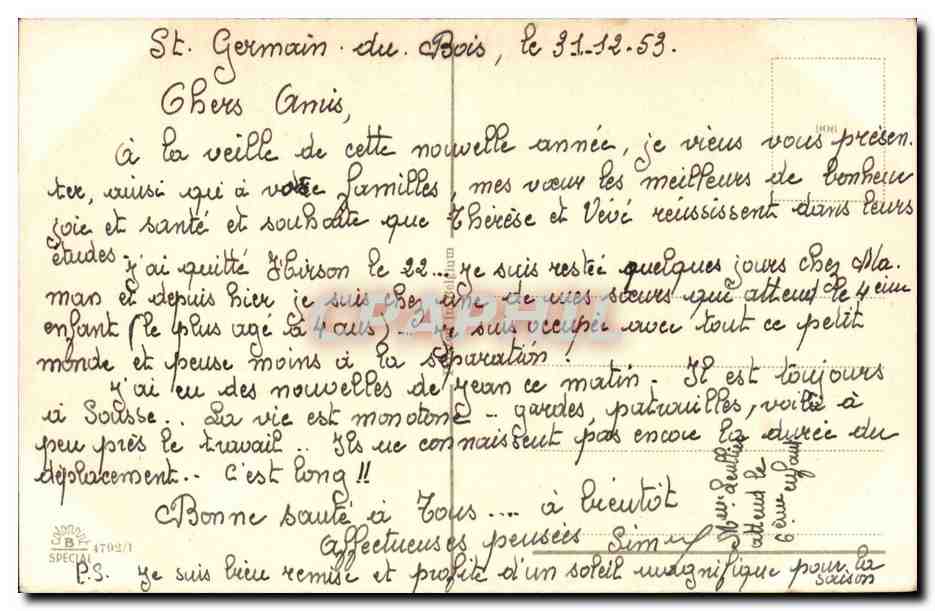 St. Germain . du . Bois, le 31-12-53.
Chers Amis,
A la veille de cette nouvelle année, je viens vous présen-
ter, ainsi qu'à votre familles, mes vœux les meilleurs de bonheur
joie et santé et souhaite que Thérèse et Vévé réussissent dans leurs
études.
J'ai quitté Hirson le 22... Je suis restée quelques jours chez Ma-
man et depuis hier je suis chez une de mes sœurs qui attend le 4ème
enfant (le plus agé à 4 ans) ... Je suis occupée avec tout ce petit
monde et pense moins à la séparation.
J'ai eu des nouvelles de Jean ce matin. Il est toujours
à Sousse.. La vie est monotone .. gardes, patrouilles, voilà à
peu près le travail .. Ils ne connaissent pas encore la durée du
déplacement.. C'est long !!
Bonne santé à Tous .... à bientôt
Affectueuses pensées
attend le
6ème enfant
P.S. Je suis bien remise et profite d'un soleil magnifique pour la
saison
SPECIAL 4702/1
CRAPHIL